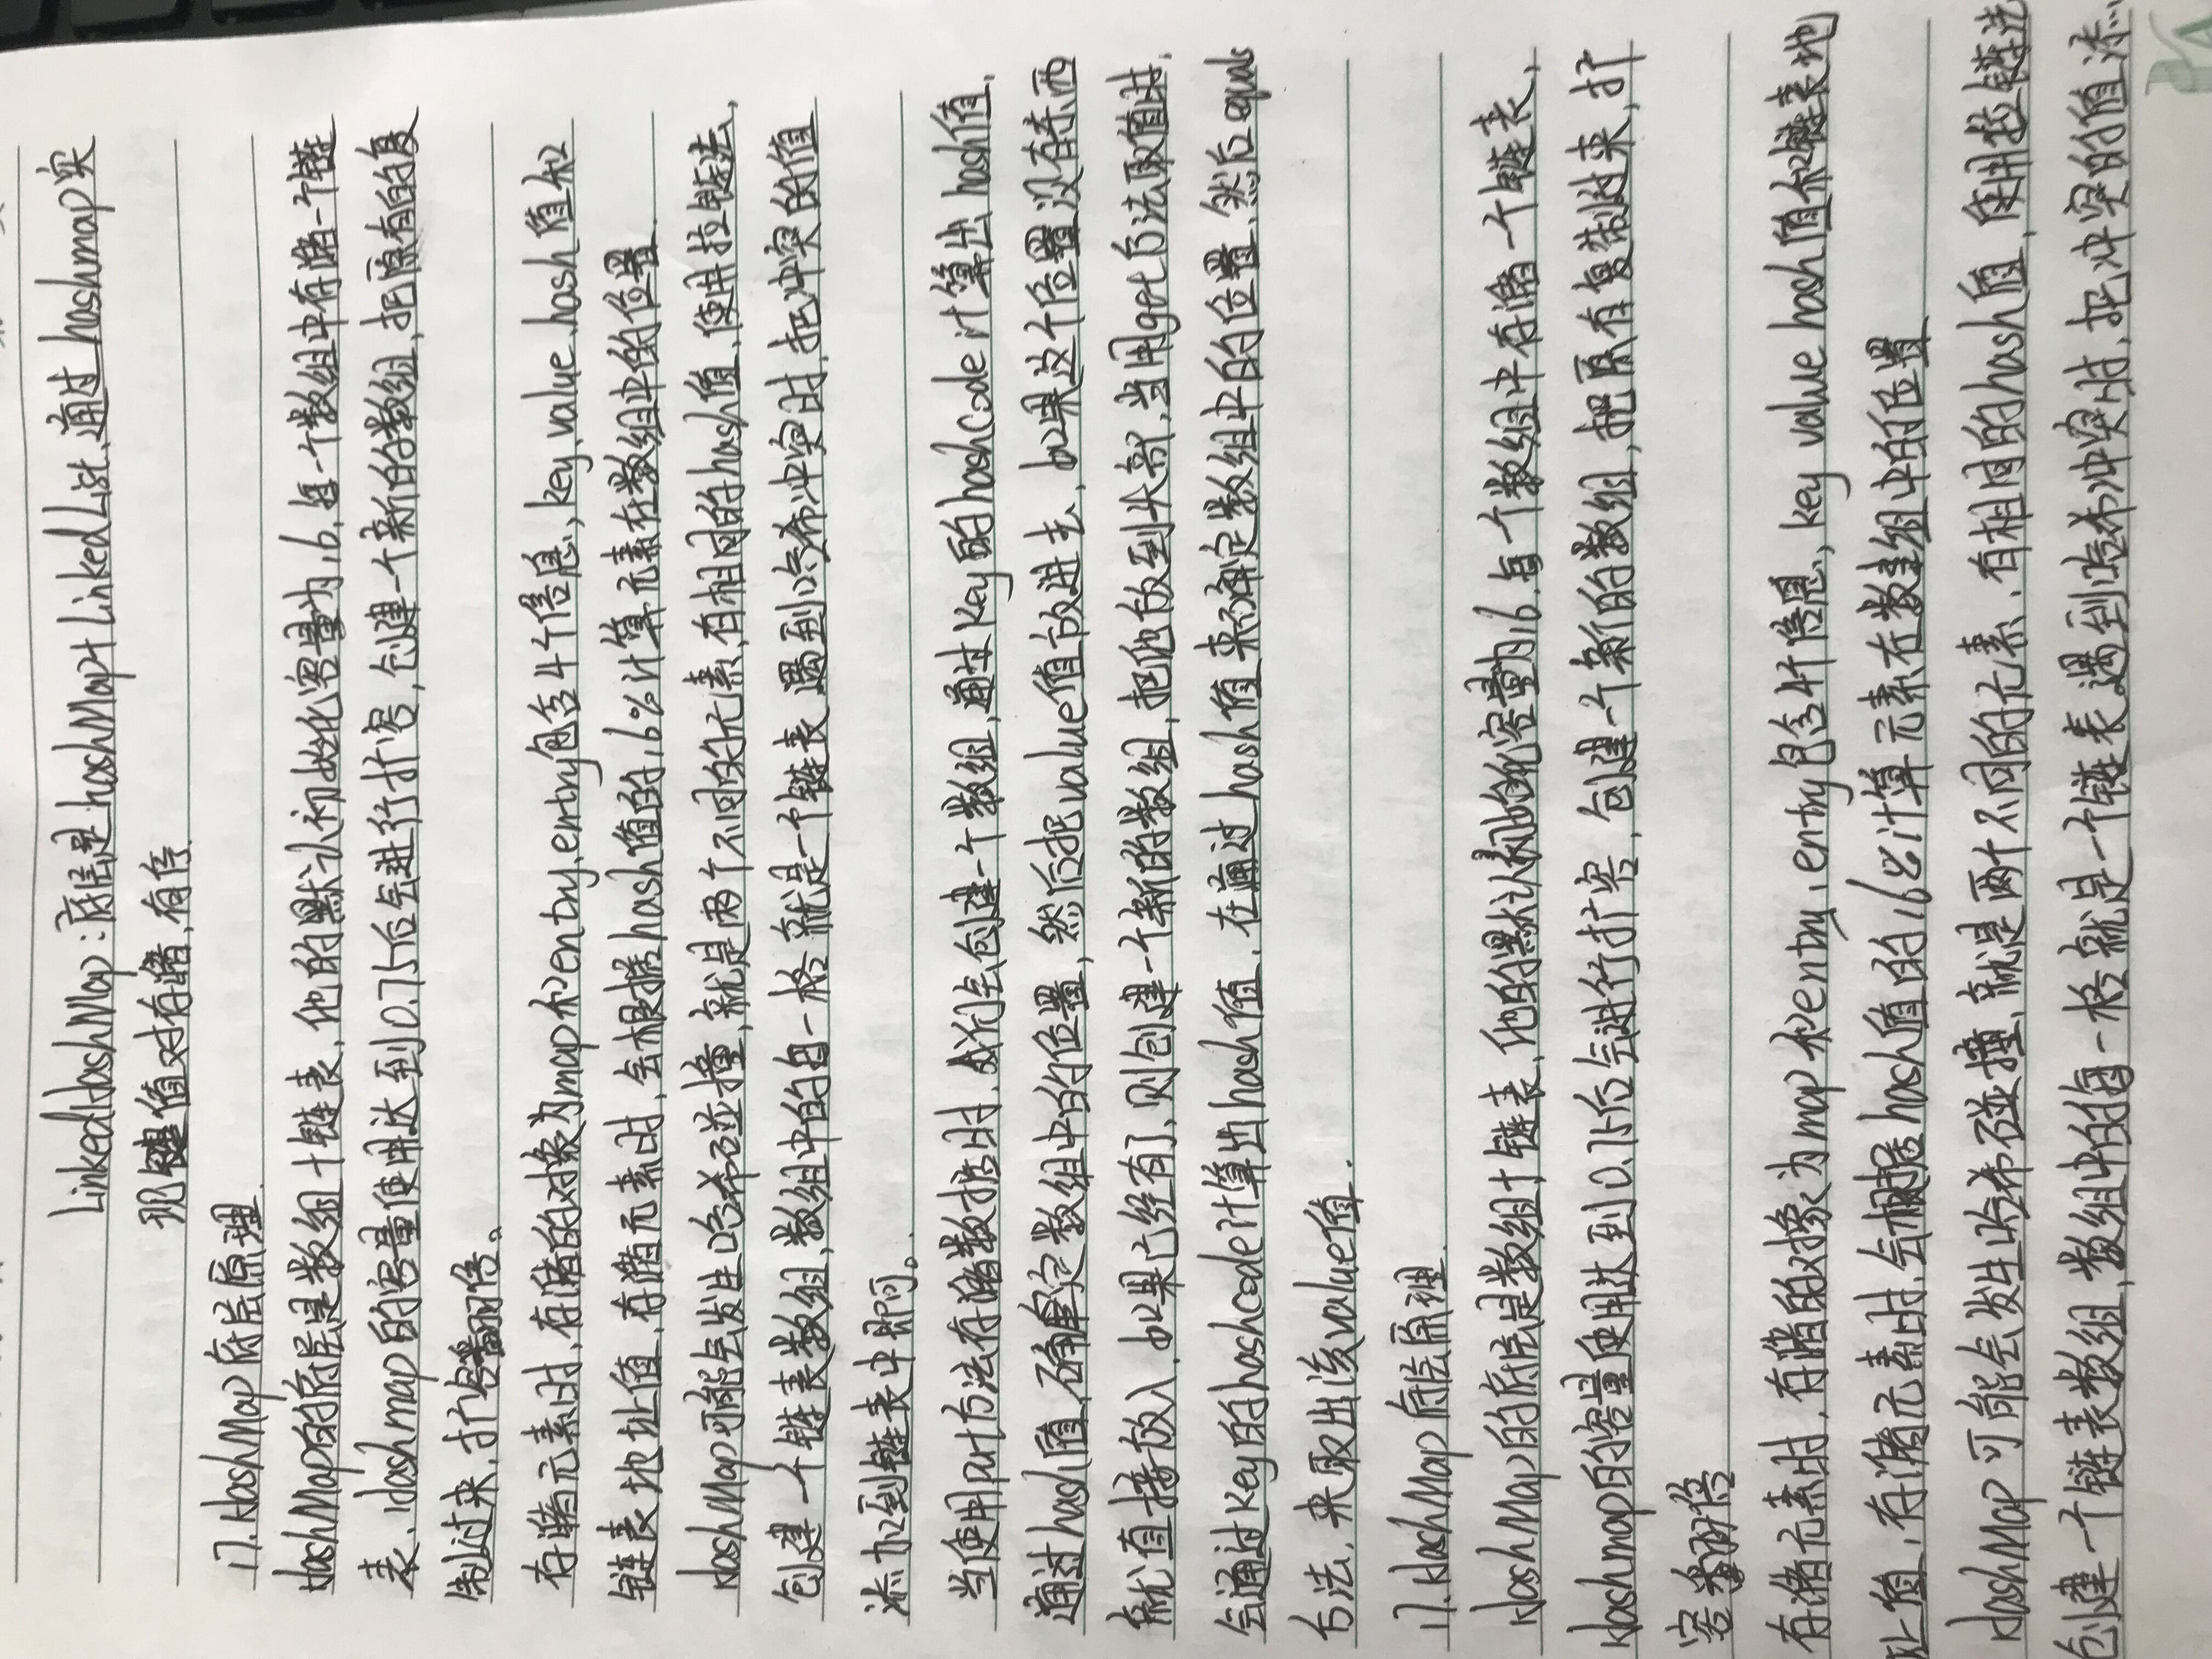 LinkedHashMap:底层是hashMap+LinkedList,通过hashmap实
现键值对存储,有序.
17.HashMap底层原理.
HashMap的底层是数组+链表,他的默认初始化容量为16,每一个数组中存储一个链
表、Hashmap的容量使用达到0.75后会进行扩容,创建一个新的数组,把原有的复
制过来,扩容翻倍。
存储元素时,存储的对象为map和entry,entry包含4个信息,key、value、hash值和
链表地址值,存储元素时,会根据hash值的16%计算元素在数组中的位置.
HashMap可能会发生哈希碰撞,就是两个不同的元素,有相同的hash值,使用拉链法,
创建一个链表数组,数组中的每一格就是一个链表 遇到哈希冲突时,把冲突的值
添加到链表中即可。
当使用put方法存储数据时,我们会创建一个数组,通过key的hashcode计算出hash值,
通过hash值,确定数组中的位置,然后把value值放进去,如果这个位置没有东西
就直接放入,如果已经有了,则创建一个新的数组,把他放到头部,当用get方法取值时,
会通过key的hashcode计算出hash值,在通过hash值来确定数组中的位置,然后equals
方法,来取出该value值.
17.HashMap底层原理.
HashMap的底层是数组+链表,他的默认初始化容量为16.每个数组中存储一个链表,
Hashmap的容量使用达到0.75后会进行扩容,创建一个新的数组,把原有复制过来,扩
容翻倍
存储元素时,存储的对象为map和entry,entry包含4个信息,key value hash值和链表地
址值,存储元素时,会根据hash值的16%计算元素在数组中的位置
HashMap可能会发生哈希碰撞,就是两个不同的元素,有相同的hash值,使用拉链法
创建一个链表数组,数组中的每一格就是一个链表 遇到哈希冲突时,把冲突的值添